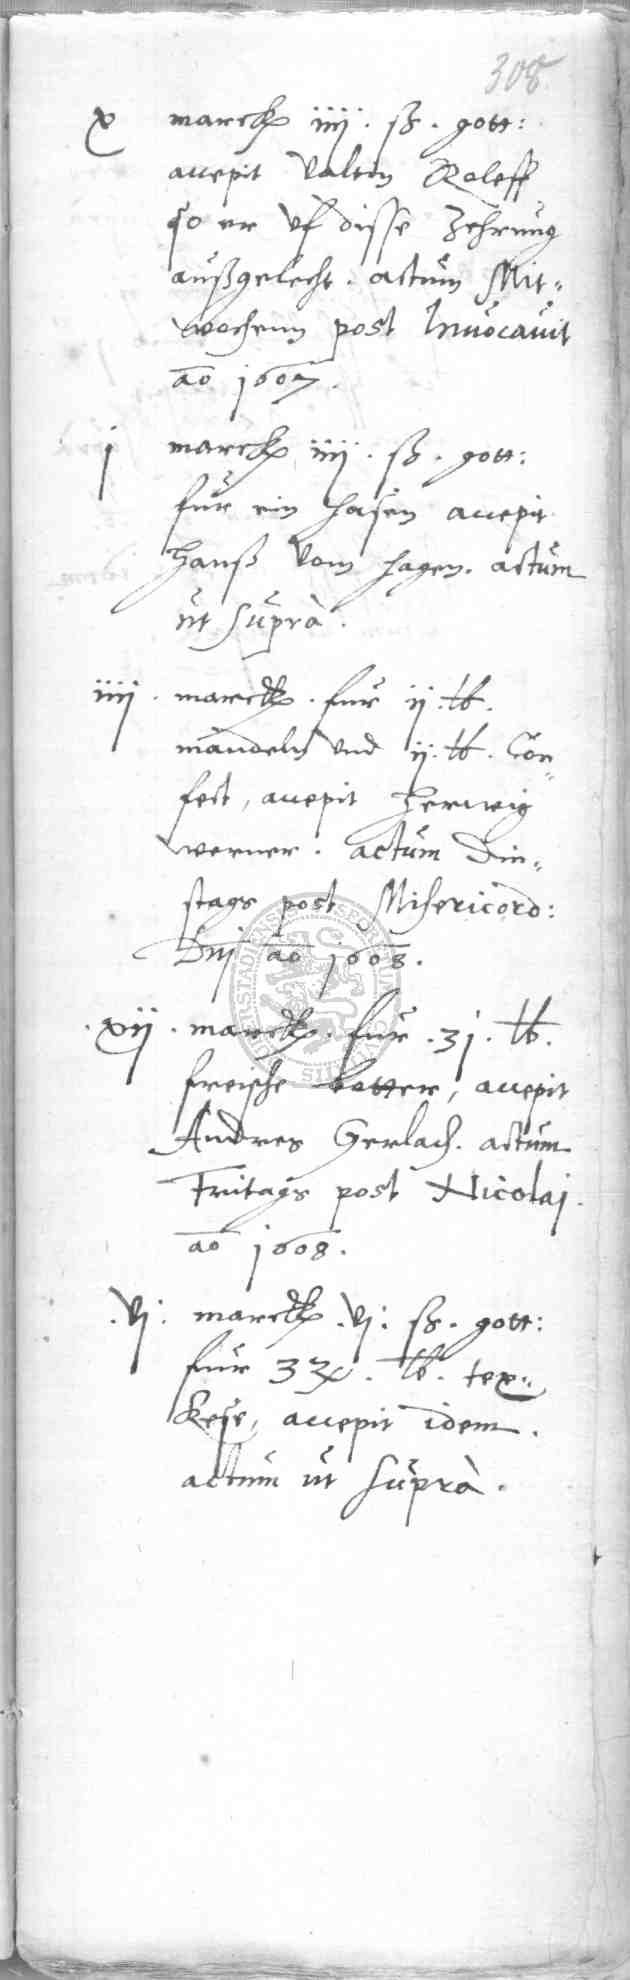 308
x marck iiij. sß. gott:
accepit Valtin Roleff
so er vf disse Zehrung
außgelecht. actum Mit=
wochenn post Invocavit
ao 1607.
j marck iiij. sß. gott:
für ein hasen accepit
Hanß vom Hagen. actum
ut suprà.
iiij. marck. fur ij. lb.
mandeln vnd ij. lb. Con=
fect, accepit Herwig
werner. actum Din=
stags post Misericord:
Dnj ao 1608.
.xij. marck. fur .31. lb.
freische botter, accepit
Andres Gerlach. actum
Fritags post Nicolaj.
ao 1608.
.vj. marck .vj. sß. gott:
fur lb. tex=
kese, accepit idem.
actum ut suprà.